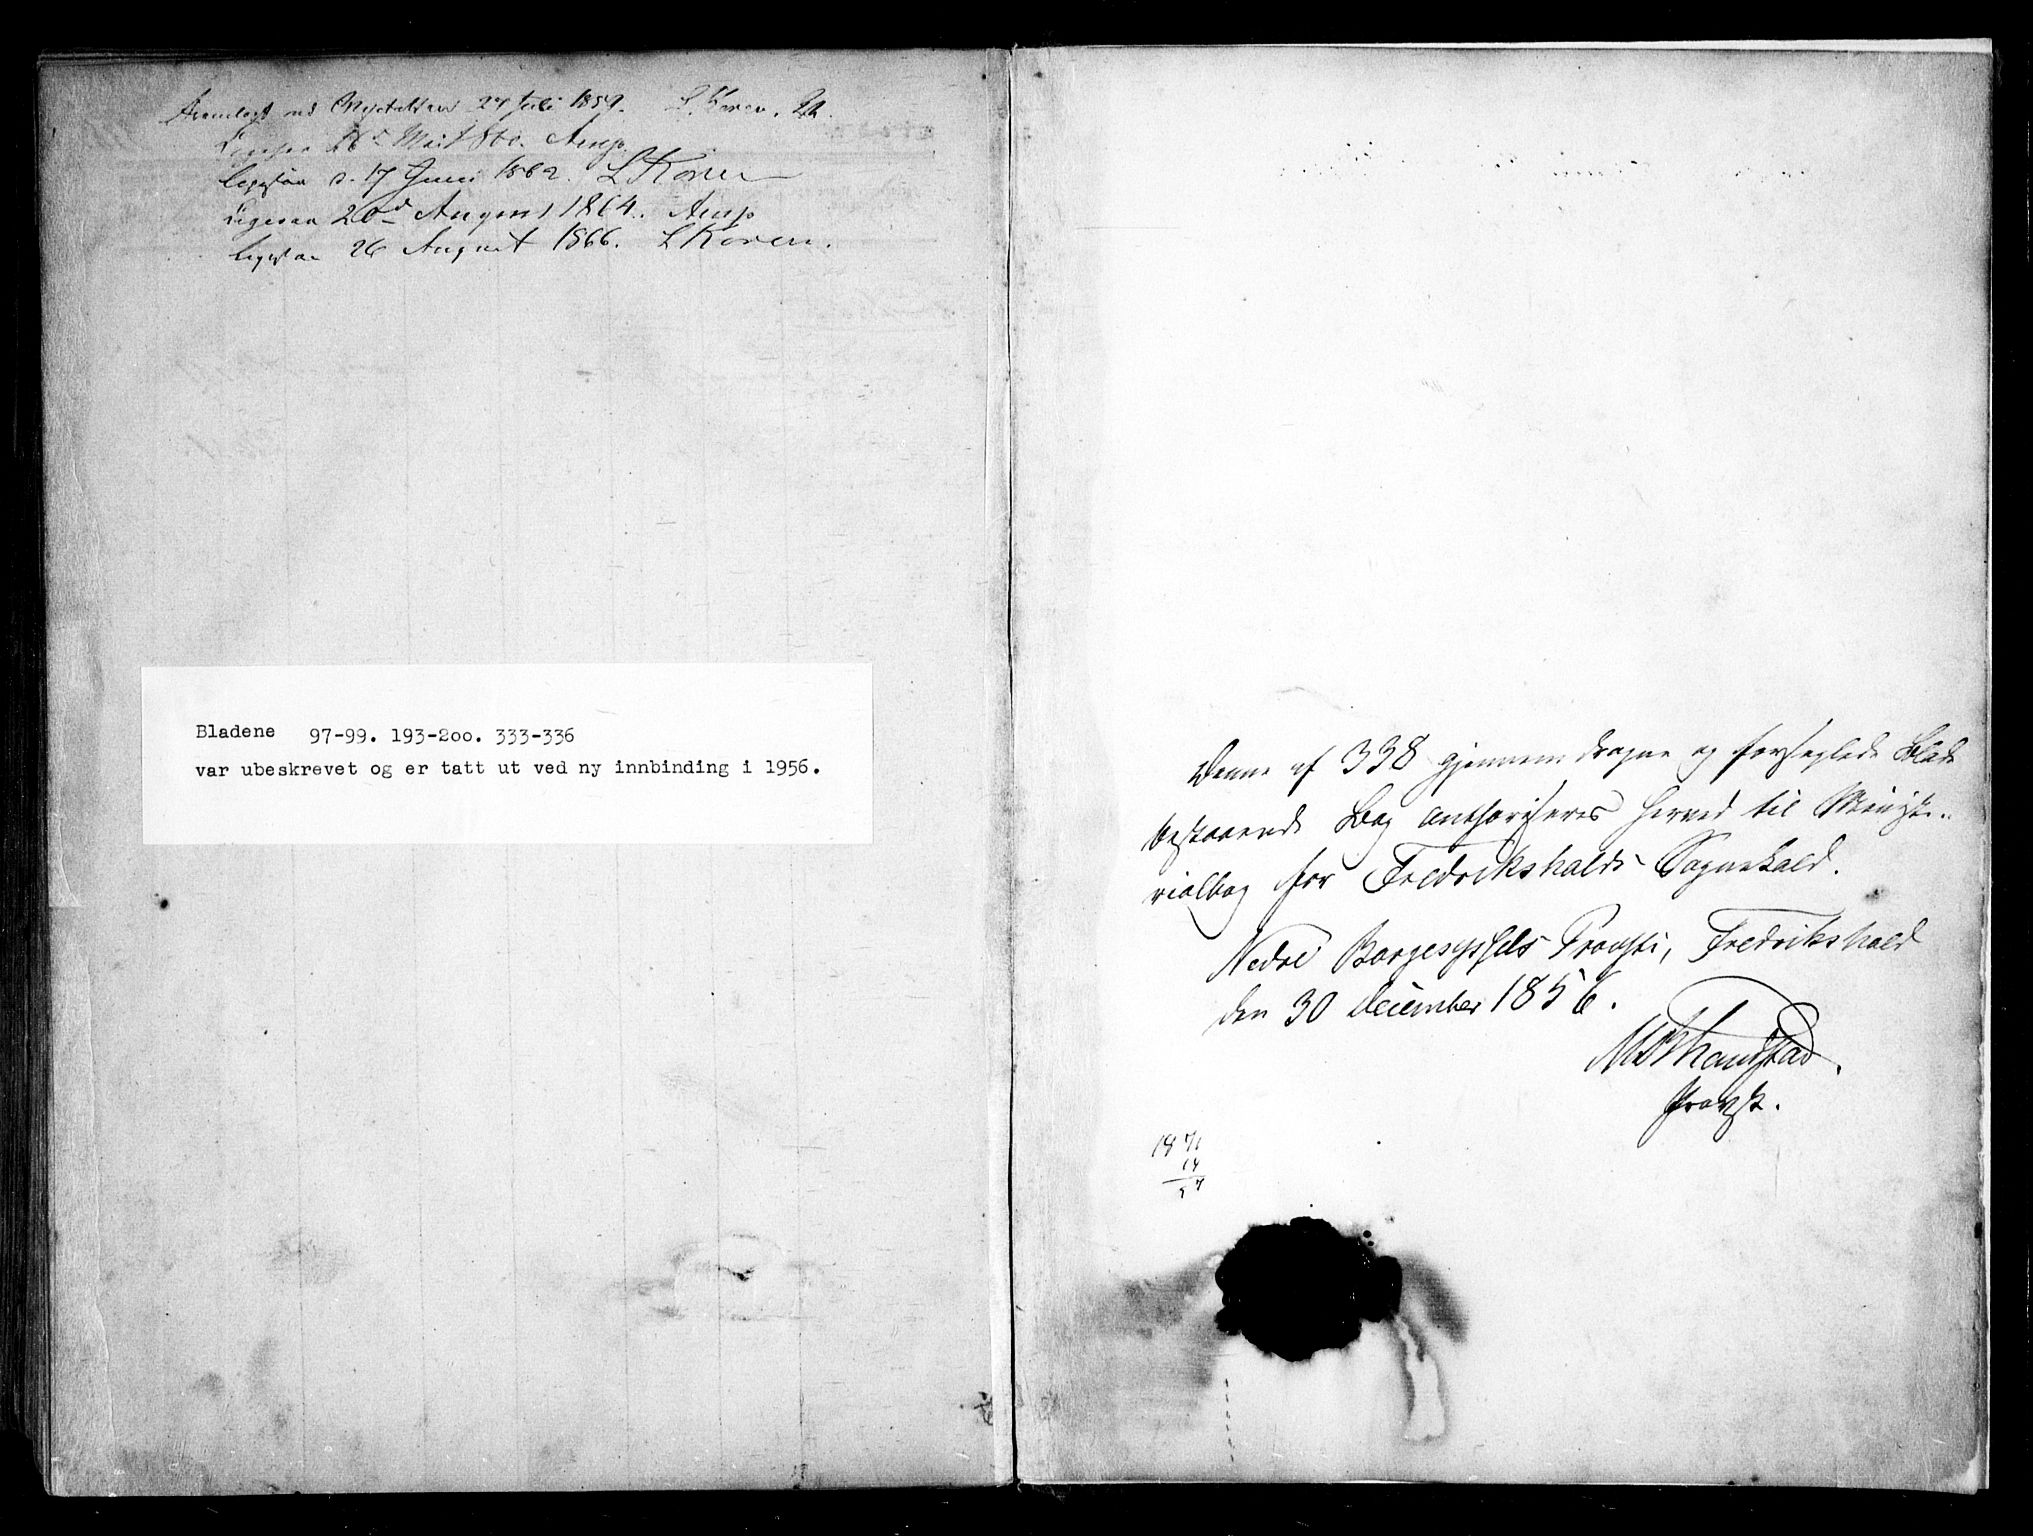 Fremlagt ved Visitatsen 27 Juli 1859. L. Koren.
Ligesaa Mai 1860. Aup
Ligesaa d. 17 Juni 1862. L Koren
Ligesaa 20d August 1864. Aup
Ligesaa 26 August 1866. L Koren.
Bladene 97-99. 193-2oo. 333-336
var ubeskrevet og er tatt ut ved ny innbinding i 1956.
Denne af 338 gjennemdragne og forseglede Blade
bestaaende Bog authoriseres herved til Ministe-
rialbog for Fredrikshalds Sognekald.
Nedre Borgesyssels Provsti, Fredrikshald
den 30 December 1856.
Provst.
1871
14
57